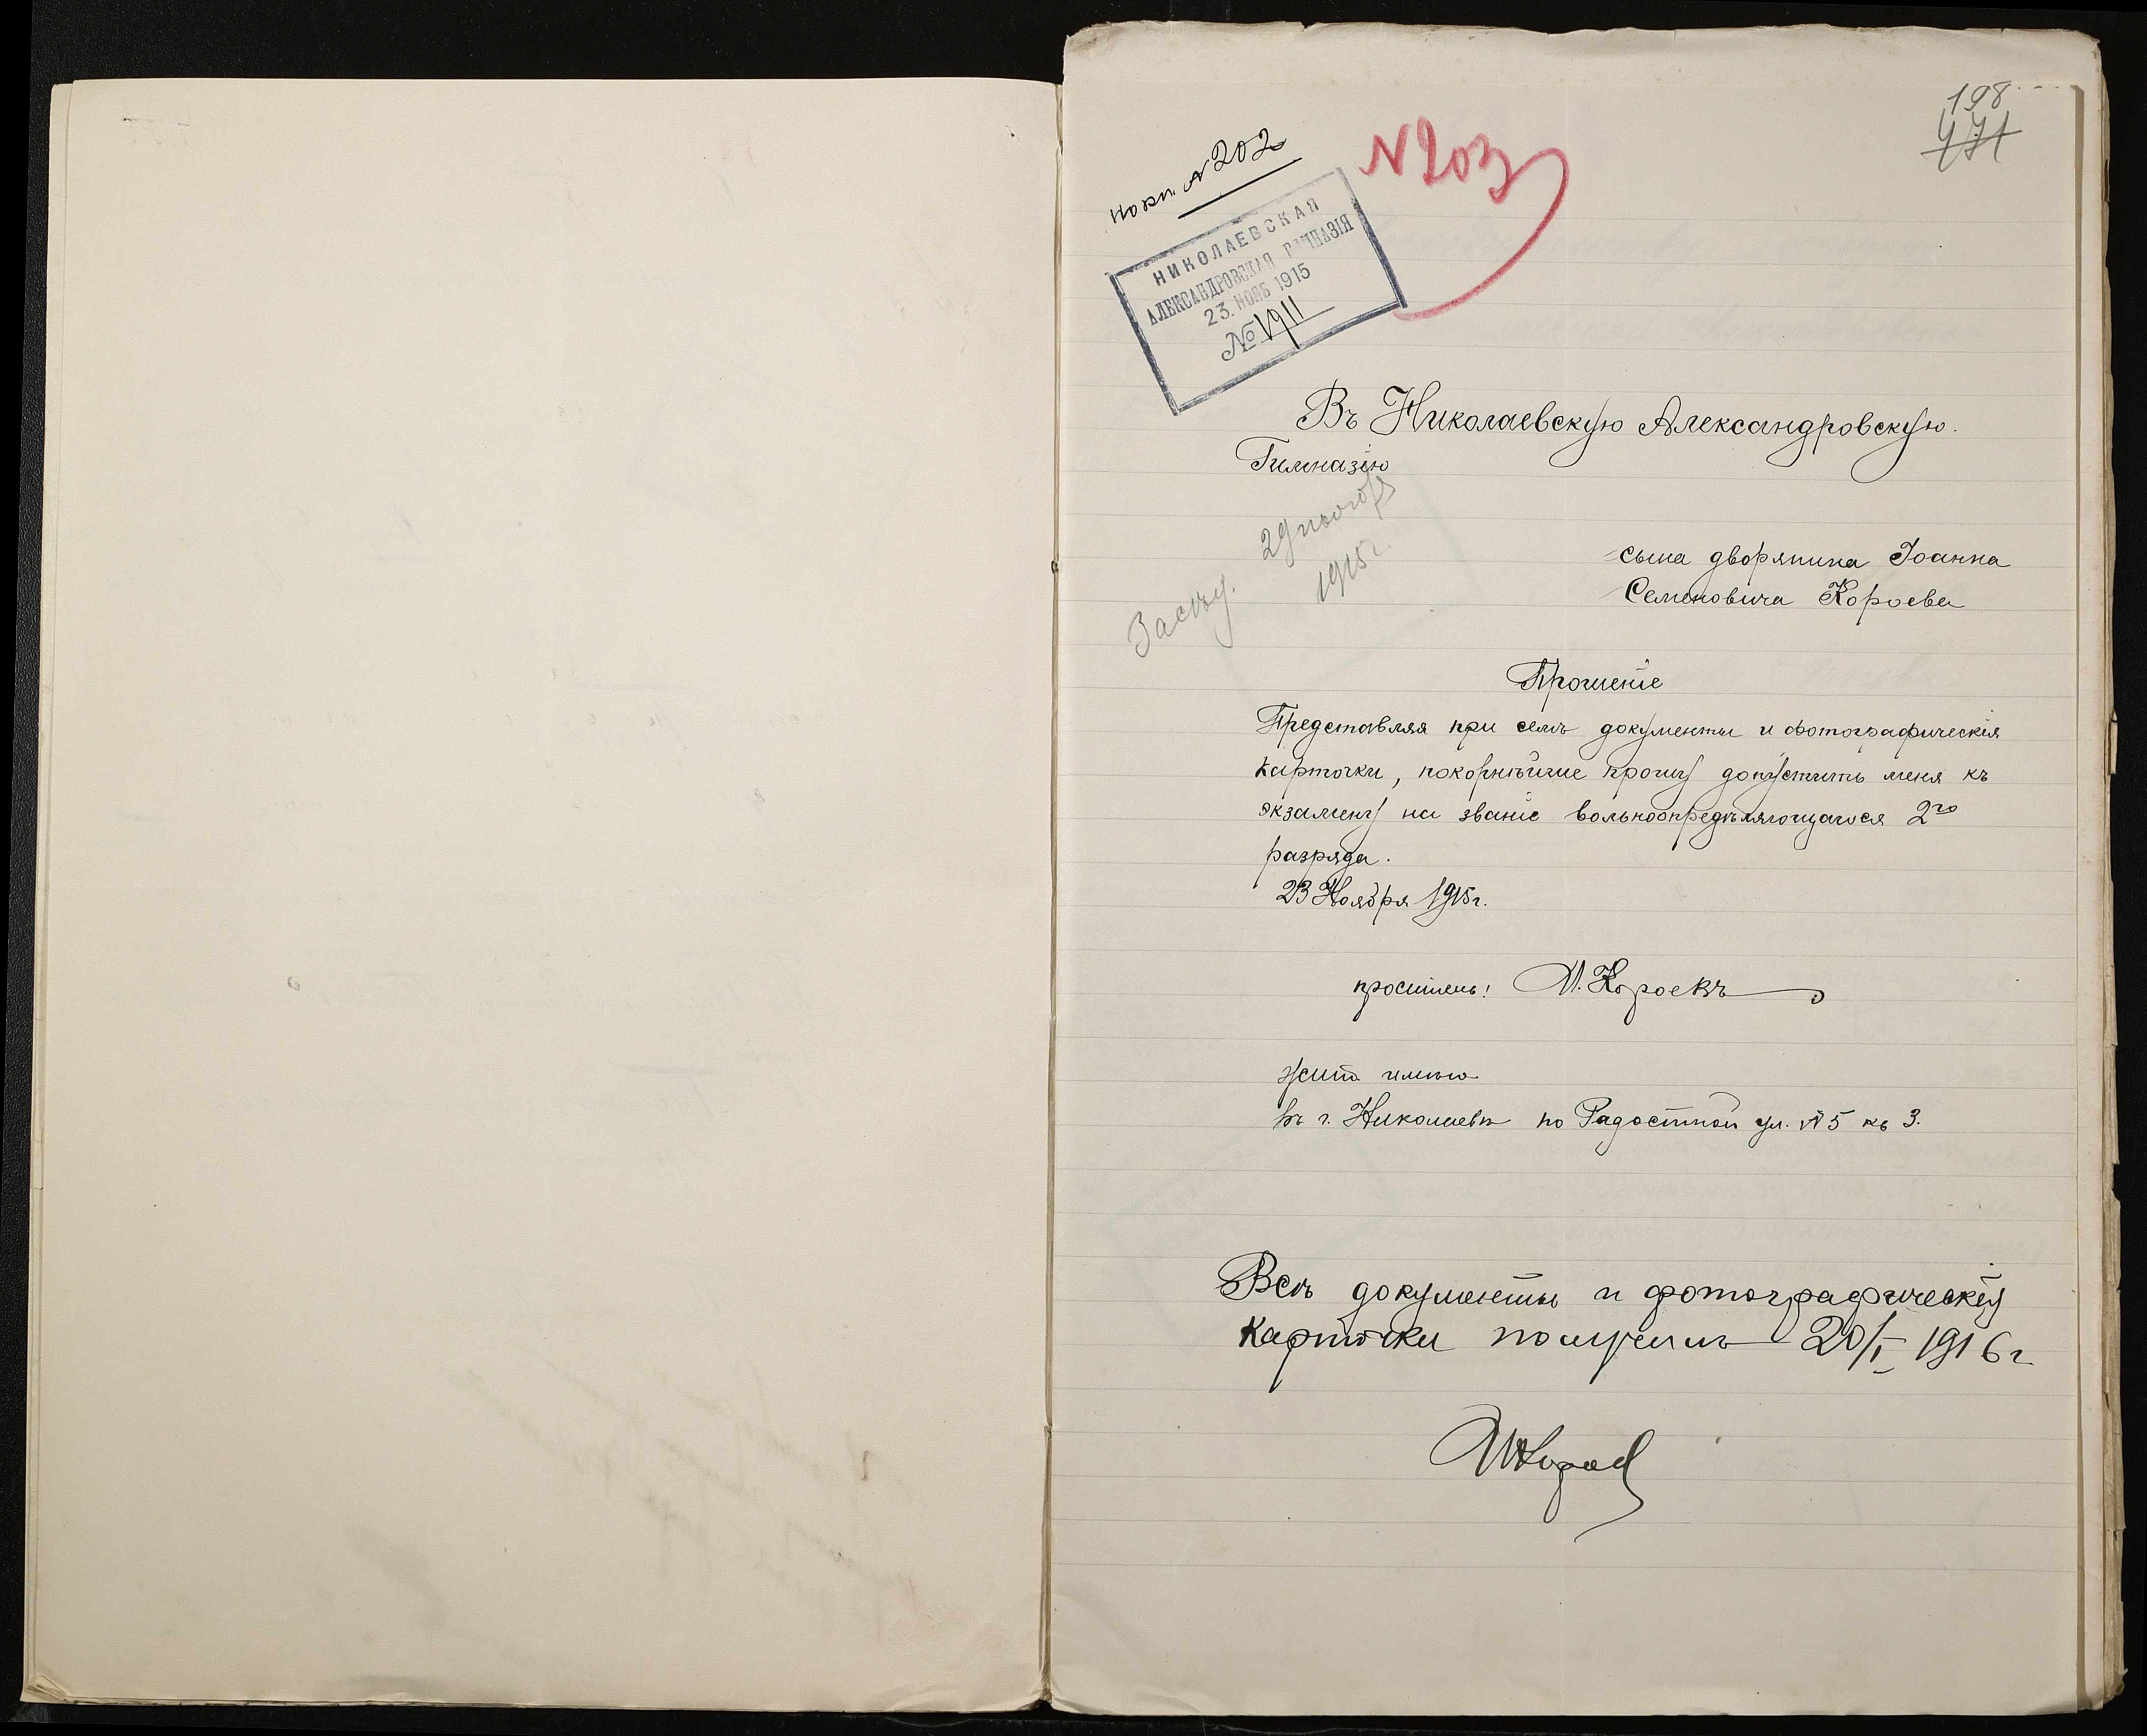 198
471
№ 202
№ 203
НИКОЛАЕВСКАЯ
АЛЕКСАНДРОВСКАЯ ГИМНАЗІЯ
23. НОЯБ 1915
№ 1911
Въ Николаевскую Александровскую.
Гимназію
29 ноября
1915 г.
сына дворянина Іоанна
Семеновича Короева
Прошеніе
Представляя при семъ документы и фотографическія
карточки, покорнѣйше прошу допустить меня къ
экзамену на званіе вольноопредѣляющагося 2го
разряда.
23 Ноября 1915 г.
проситель: И. Короевъ
жит. имѣю
въ г. Николаевѣ по Радостной ул. № 5 кв 3.
Всѣ документы и фотографическія
карточки получилъ 20/I 1916 г
ИКороев